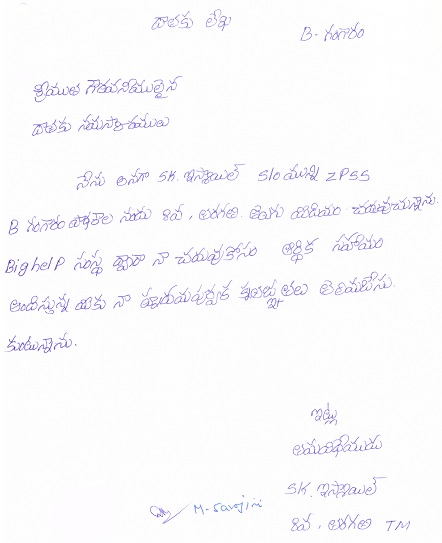 దాతకు లేఖ
B- గంగారం
శ్రీయుత గౌరవనీయులైన
దాతకు నమస్కారములు
నేను అనగా SK. ఇస్మాయిల్ S/o మున్ని ZPSS
B గంగారం పాఠశాల నందు 8వ, తరగతి తెలుగు మీడియం చదువుచున్నాను.
Bighelp సంస్థ ద్వారా నా చదువుకోసం ఆర్థిక సహాయం
అందిస్తున్న మీకు నా హృదయపూర్వక కృతజ్ఞతలు తెలియజేసు
కుంటున్నాను.
ఇట్లు
తమవిధేయుడు
SK. ఇస్మాయిల్
8వ, తరగతి TM
M- Sarojini